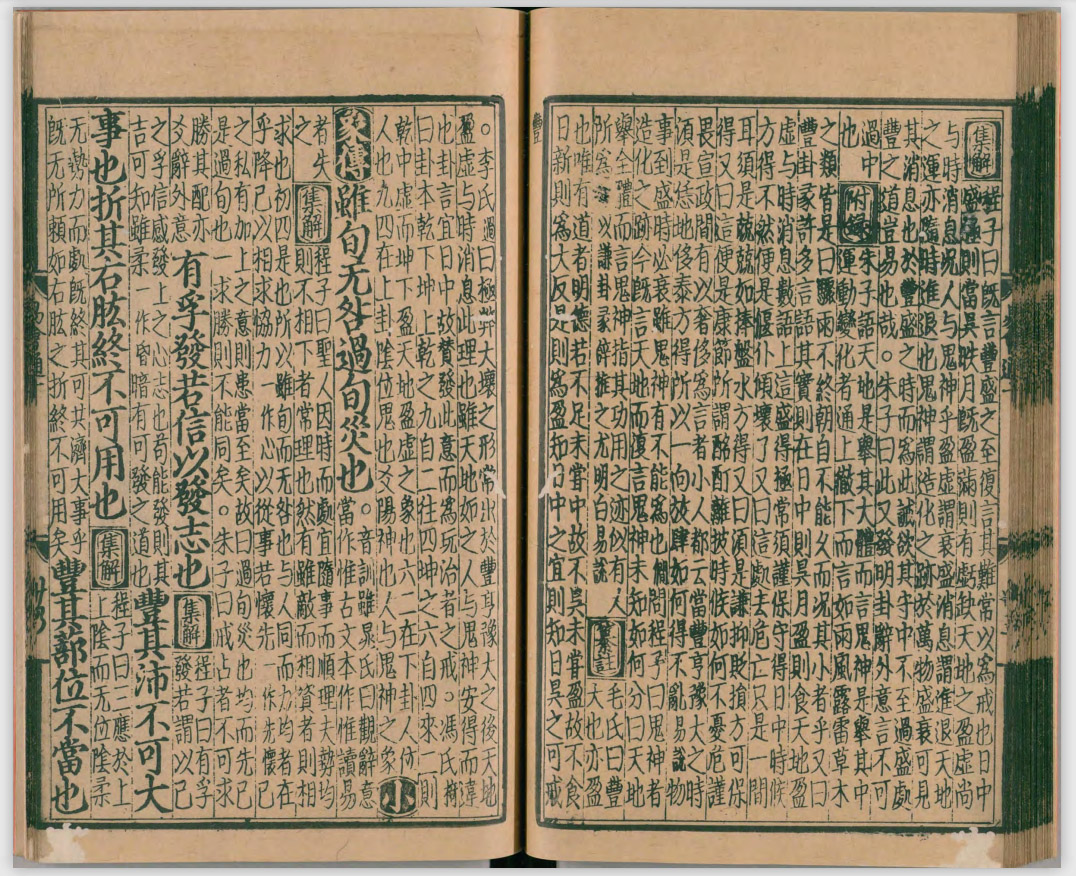 集解 程子曰既言豐盛之至復言其難常以為戒也日中
盛極則當昃昳月既盈滿則有虧缺天地之盈虛尚
与時消息况人与鬼神乎盈虛謂盛衰消息謂進退天地
之運亦隨時進退也鬼神謂造化之跡於萬物盛衰可見
其消息也於豐盛之時而為此誡欲其守中不至過盛處
豐之道豈易也哉。朱子曰此又發明卦辭外意言不可
過中
也 附錄 朱子語天地是舉其大體而言鬼神是舉其中
運動變化者通上徹下而言如雨風露雷草木
之類皆是曰驟雨不終朝自不能久而况其小者乎又曰
豐卦彖許多言語其實則在日中則昃月盈則食天地盈
虛与時消息數語上這盛得極常須謹保守得日中時候
方得不然便是偃仆傾壞了又曰這處去危亡只是一間
耳須是兢兢如捧盤水方得又曰須是謙抑貶損方可保
得又曰這便是康節所謂酩酊離披時候如何不憂危謹
畏宣政間有以奢侈為言者小人都云當豐亨豫大之時
須是恁地侈泰方得所以一向放肆如何得不亂易說物
事到盛時必衰雖鬼神有不能為也㵎問程子曰鬼神者
造化之跡今既言天地而復言鬼神未知如何分曰天地
舉全體而言鬼神指其功用之迹似有人
所為以謙卦彖辭推之尤明白易說 纂註 毛氏曰豐
大也亦盈
也唯有道者明德若不足未嘗中故不昃未嘗盈故不食
日新則為大反是則為盈知日中之宜則知日昃之可戒
。李氏過曰極弊大壞之形常出於豐亨豫大之後天地
盈虛与時消息此理也雖天地如之人与鬼神安得而違
也卦言宜日中故贊發此意而為玩治者之戒。馮氏椅
曰卦本乾下坤上乾之九自二往四坤之六自四來二則
乾中虛而坤下盈天地盈虛之象也六二在下卦人位何
人也九四在上卦陰位鬼也爻陽神也人与鬼神之象 小
象傳 雖旬无咎過旬災也
。音訓雖晁氏曰觀辭意
當作惟古文本作惟讀易
者失
之 集解 程子曰聖人因時而處宜隨事而順理夫勢均
則不相下者常理也然有雖敵而相資者則相
求也初四是也所以雖旬而无咎也与人同而力均者在
乎降己以相求協力一作心以從事若懷先一作先懷己
之私有加上之意則患當至矣故曰過旬災也均而先己
是過旬也一求勝則不能同矣。朱子曰戒占者不可求
勝其配亦
爻辭外意
有孚發若信以發志也 集解
程子曰有孚
發若謂以己
之孚信感發上之心志也苟能發則其
吉可知雖柔一作昏暗有可發之道也
豐其沛不可大
事也折其右肱終不可用也 集解
程子曰三應於上
上陰而无位陰柔
无勢力而處既終其可共濟大事乎
既无所賴如右肱之折終不可用矣
豐其蔀位不當也